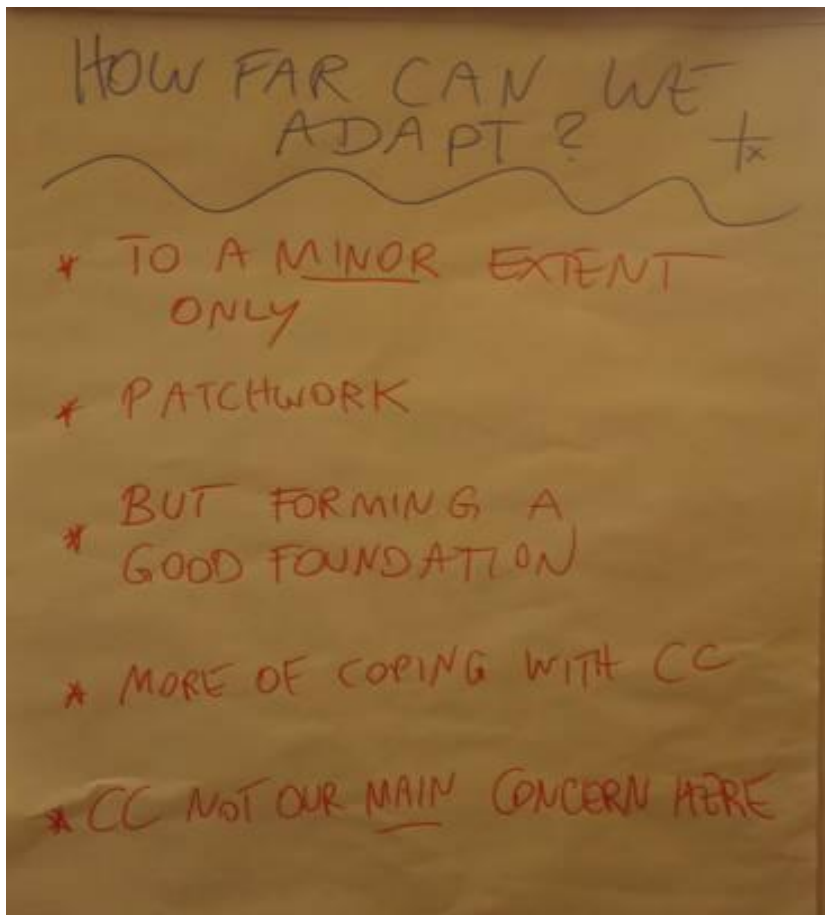 HOW FAR CAN WE
ADAPT?
* TO A MINOR EXTENT
ONLY
* PATCHWORK
* BUT FORMING A
GOOD FOUNDATION
* MORE OF COPING WITH CC
* CC NOT OUR MAIN CONCERN HERE